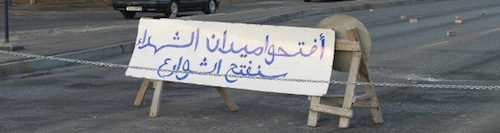 أفتحوا ميدان الشهداء
سنفتح الشوارع